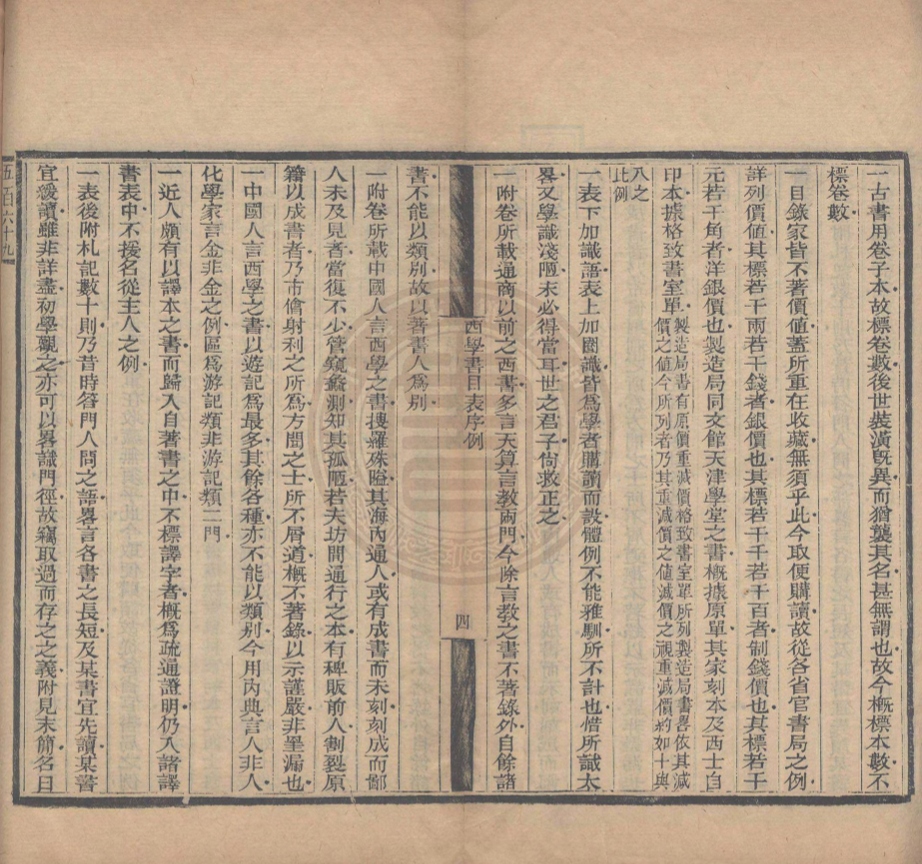 一古書用卷子本故標卷數後世裝潢既異而猶襲其名甚無謂也故今概標本數不
標卷數
一目錄家皆不著價値蓋所重在收藏無須乎此今取便購讀故從各省官書局之例
詳列價値其標若干兩若干錢者銀價也其標若干千若干百者制錢價也其標若干
元若干角者洋銀價也製造局同文館天津學堂之書概據原單其家刻本及西士自
印本據格致書室單製造局書有原價重減價格致書室單所列製造局書畧依其減
價之値今所列者乃其重減價之値減價之視重減價約如十與
八之
此例
一表下加識語表上加圈識皆爲學者購讀而設體例不能雅馴所不計也惜所識太
畧又學識淺陋未必得當耳世之君子尙救正之
一附卷所載通商以前之西書多言天算言教兩門今除言教之書不著錄外自餘諸
西學書目表序例
四
書不能以類別故以著書人爲別
一附卷所載中國人言西學之書搜羅殊隘其海內通人或有成書而未刻刻成而鄙
人未及見者當復不少管窺蠡測知其孤陋若夫坊間通行之本有稗販前人割裂原
籍以成書者乃市儈射利之所爲方聞之士所不屑道概不著錄以示謹嚴非罣漏也
一中國人言西學之書以遊記爲最多其餘各種亦不能以類別今用內典言人非人
化學家言金非金之例區爲游記類非游記類二門
一近人頗有以譯本之書而歸入自著書之中不標譯字者概爲疏通證明仍入諸譯
書表中不援名從主人之例
一表後附札記數十則乃昔時答門人問之語畧言各書之長短及某書宜先讀某書
宜緩讀雖非詳盡初學觀之亦可以畧識門徑故竊取過而存之之義附見末簡名曰
五百六十九